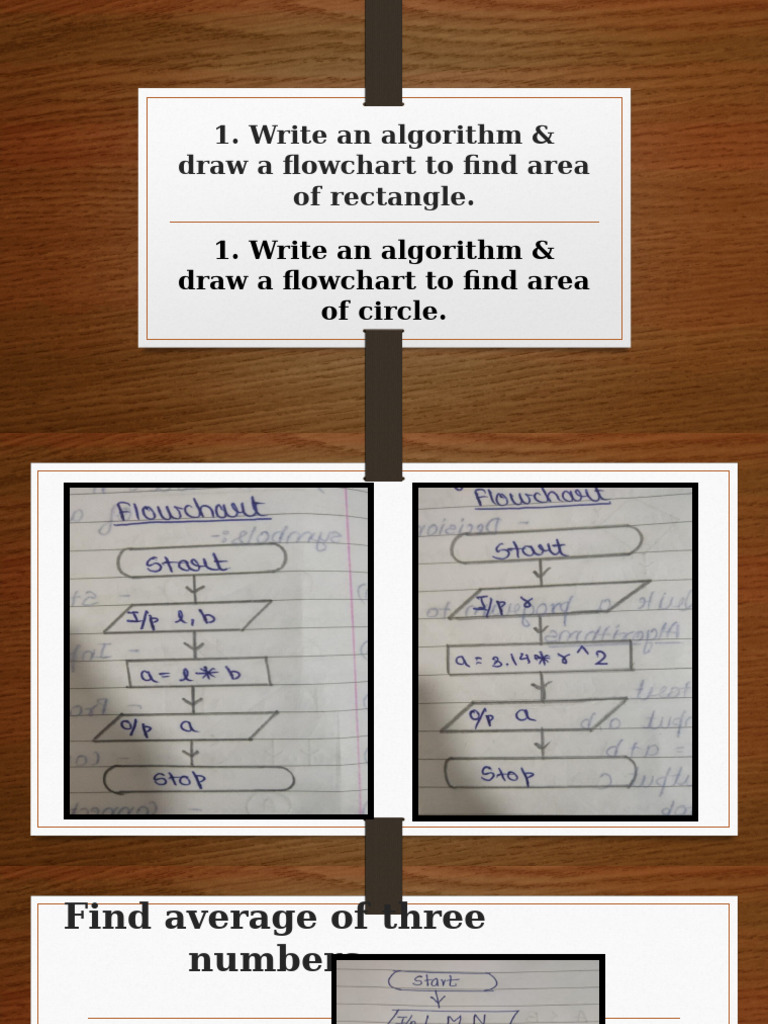 1. Write an algorithm &
draw a flowchart to find area
of rectangle.
1. Write an algorithm &
draw a flowchart to find area
of circle.
Flowchart
symbols:-
Start
I/p l, b
a = l * b
O/p a
Stop
Flowchart
Start
I/p r
a = 3.14 * r ^ 2
O/p a
Stop
Algorithm
Find average of three
numbers
Start
I/p L, M, N